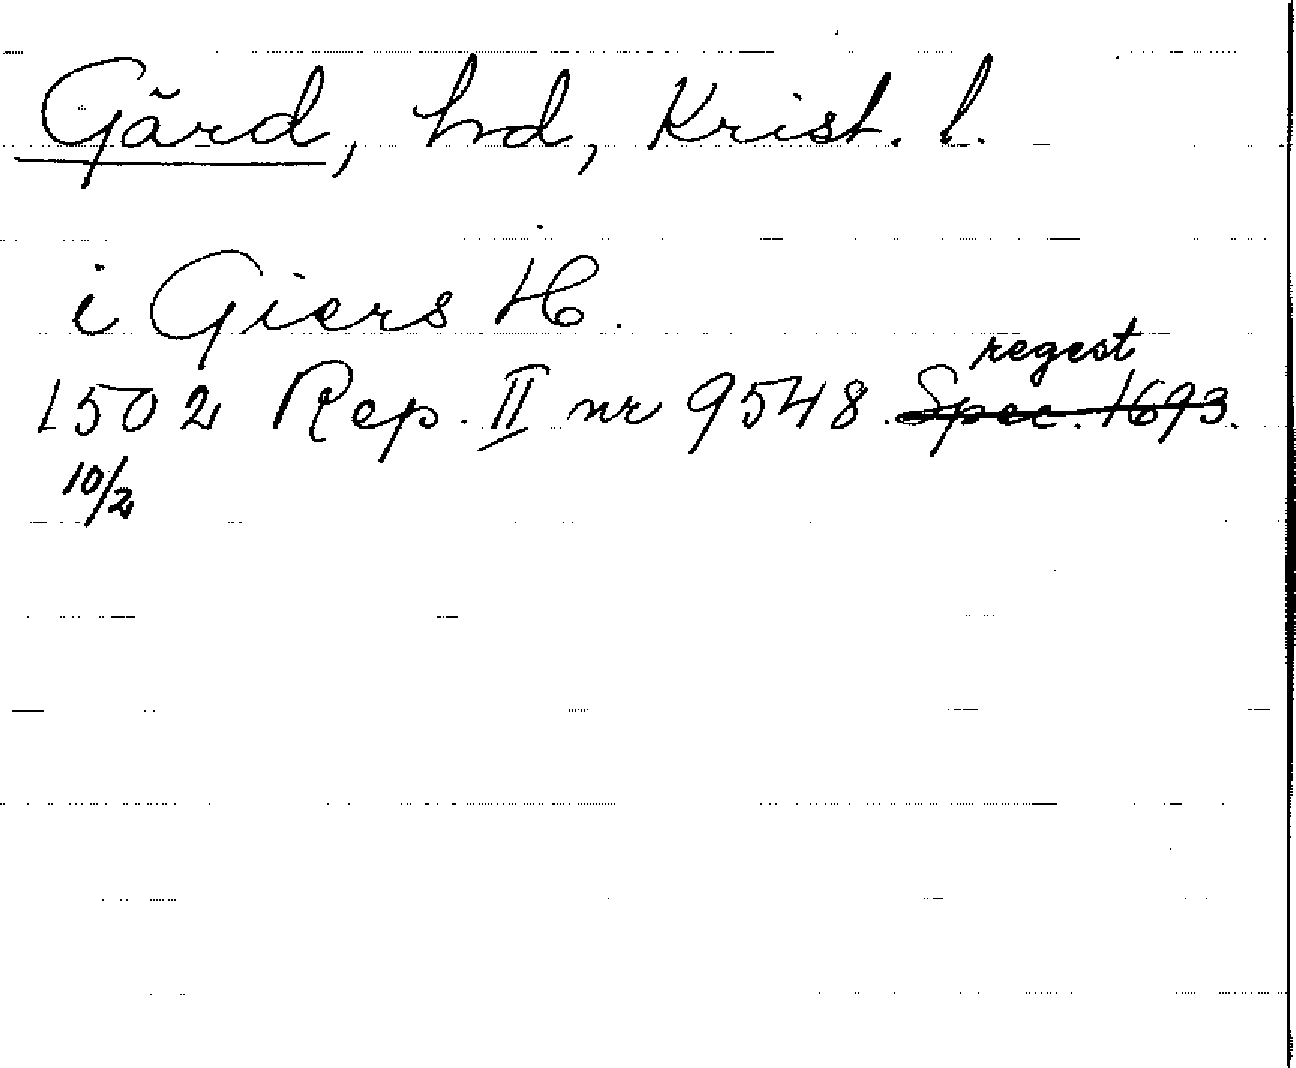 Gärd, hd, Krist. l.
i Giers H.
regest
1502 Rep. II nr 9548. Spec. 1693.
10/2